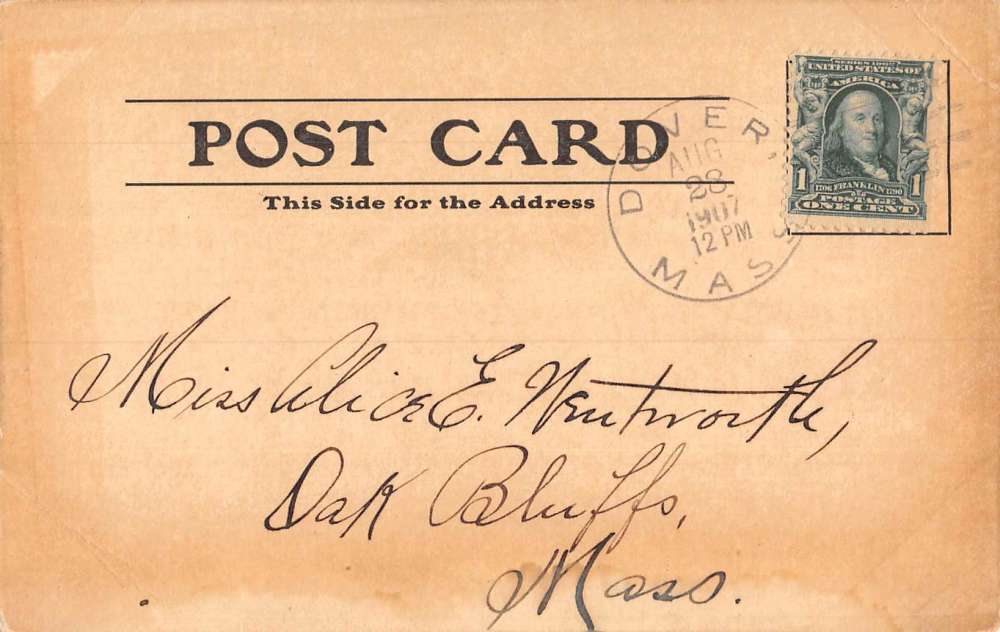 POST CARD
This Side for the Address
DOVER, MASS
AUG
28
1907
12 PM
SERIES 1902
UNITED STATES OF
AMERICA
1706 FRANKLIN 1790
POSTAGE
1 ONE CENT 1
Miss Alice E. Wentworth,
Oak Bluffs,
Mass.